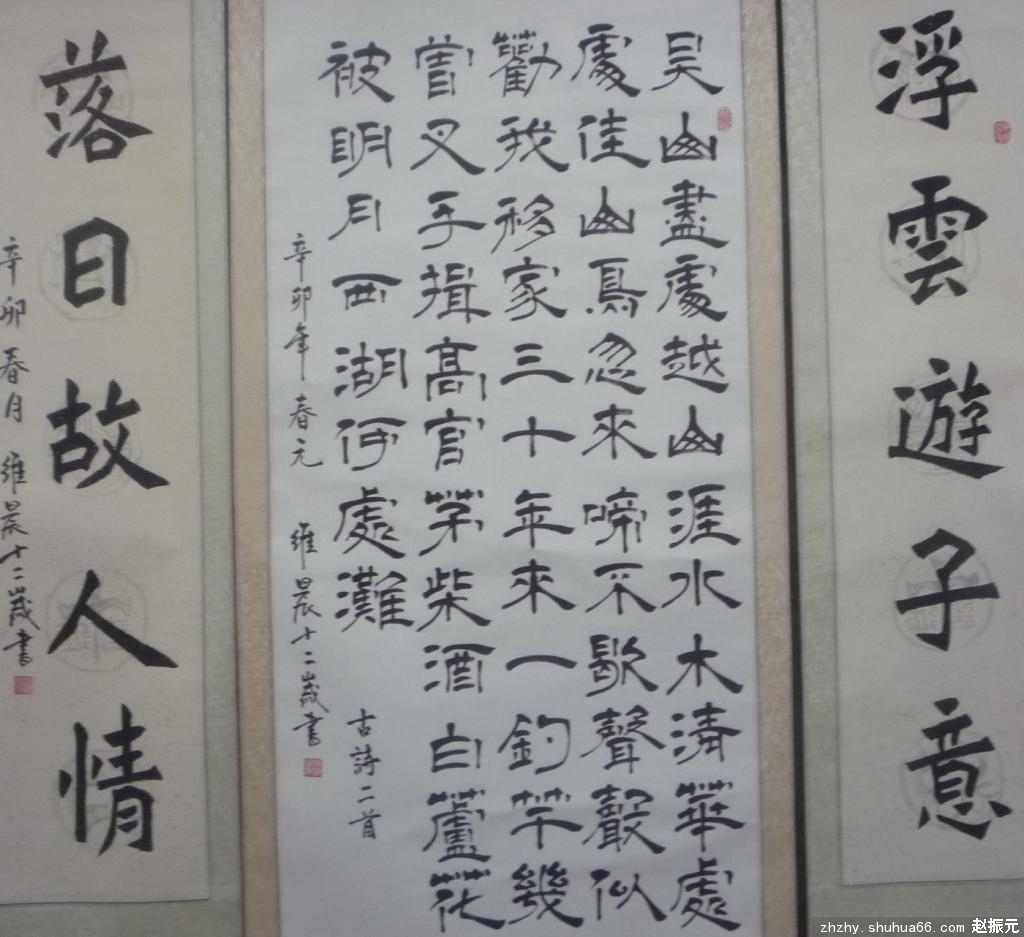 浮雲遊子意
吴山盡處越山涯水木清華處
處佳山鳥忽來啼不歇聲聲似
勸我移家三十年來一釣竿幾
嘗叉手揖高官茅柴酒白蘆花
被明月西湖何處灘
古詩二首
辛卯年春元 維晨十二歲書
落日故人情
辛卯春月 維晨十二歲書
zhzhy.shuhua66.com 赵振元